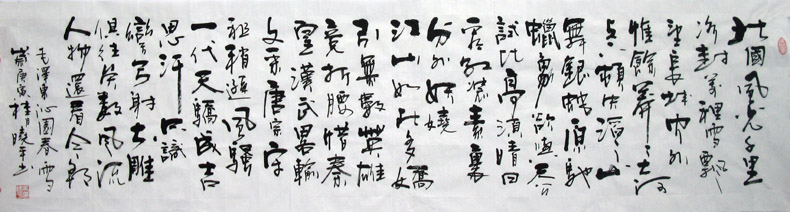 北國風光千里
冰封萬裡雪飄
望長城內外
惟餘莽莽大河
上下頓失滔滔山
舞銀蛇原馳
蠟象欲與天公
試比高須晴日
看紅裝素裹
分外妖嬈
江山如此多嬌
引無數英雄
竟折腰惜秦
皇漢武略輸
文采唐宗宋
祖稍遜風騷
一代天驕成吉
思汗只識
彎弓射大雕
俱往矣數風流
人物還看今朝
毛澤東沁園春雪
歲庚寅桂曉